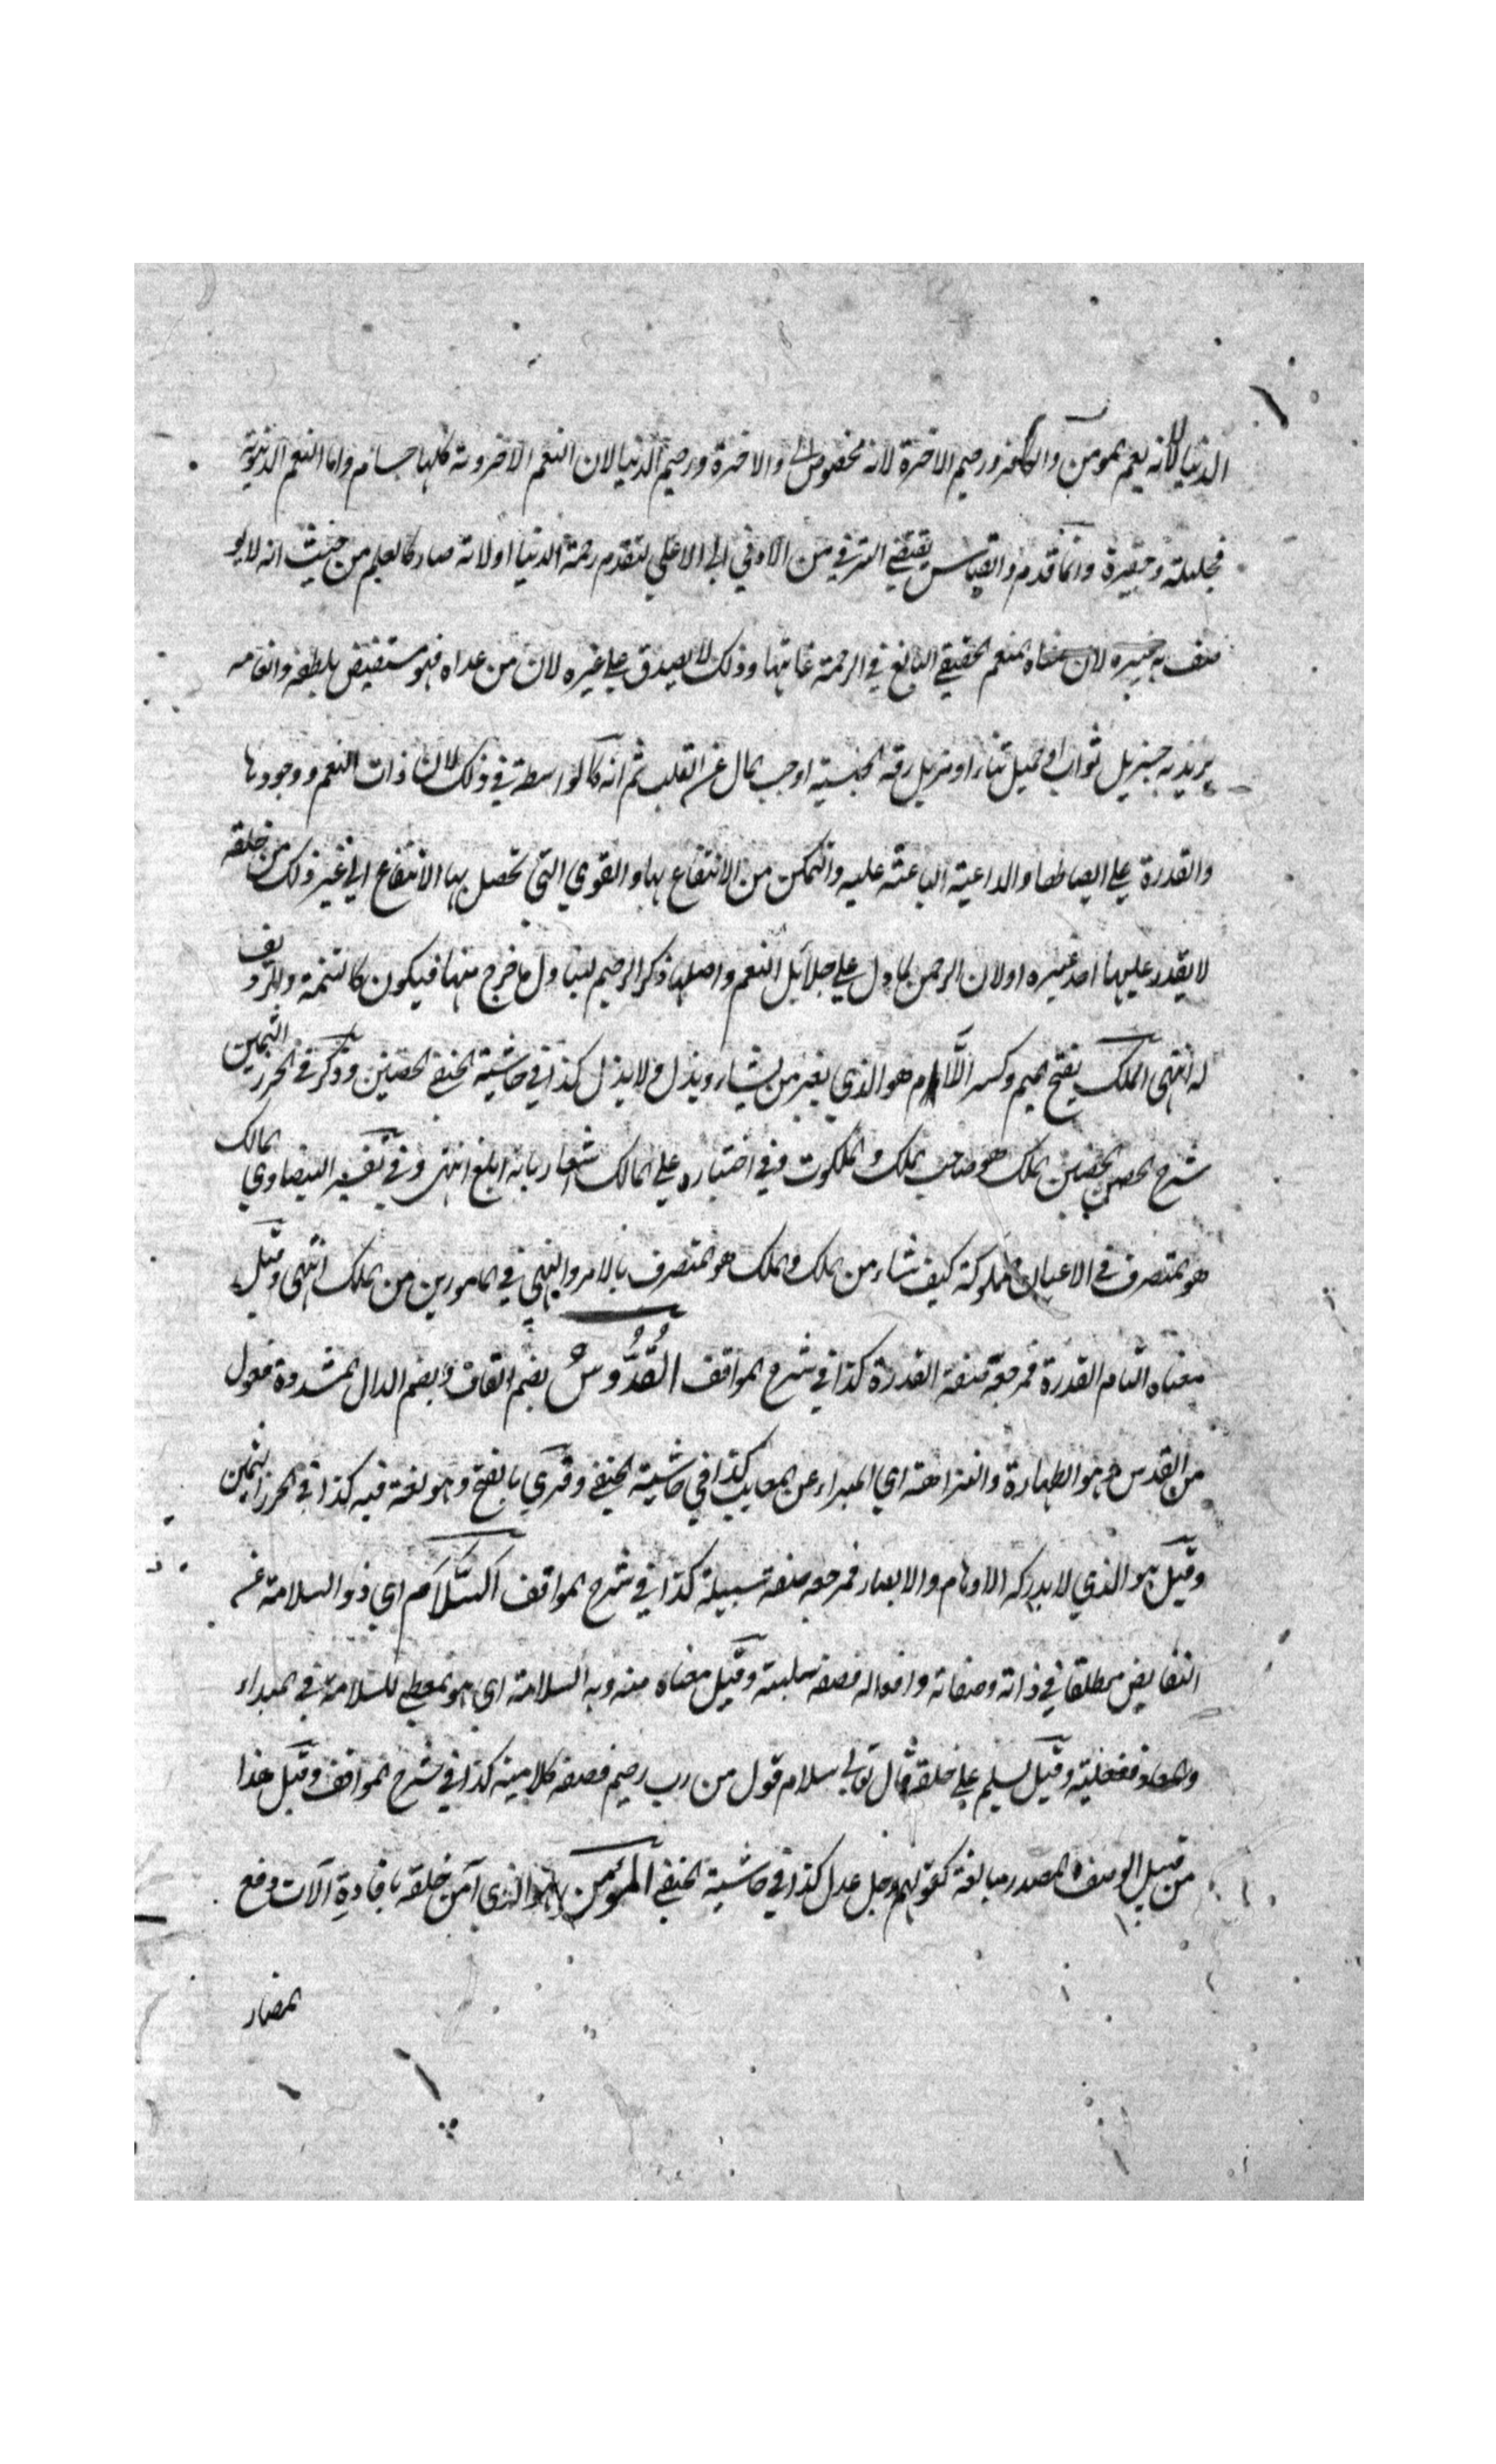 الدنيا لانه يعم المومن والكافر ورحيم الاخرة لانه مخصوص والاخرة ورحيم الدنيا لان النعم الاخروية كلها جسام واما النعم الدنيوية
فجليلة وحقيرة وانما قدم والقياس يقتضي الترقي من الادني الي الاعلي لتقدم رحمة الدنيا اولانه صار كالعلم من حيث انه لا يو
صف به غيره لان معناه المنعم الحقيقي البالغ في الرحمة غايتها وذلك لا يصدق علي غيره لان من عداه فهو مستفيض بلطفه وانعامه
يريد به جزيل ثواب او جميل ثناء او مزيل رقة الجنسية او حب المال عن القلب ثم انه كالواسطة في ذلك لان ذات النعم ووجودها
والقدرة علي ايصالها والداعية الباعثة عليه والتمكن من الانتفاع بها والقوي التي تحصل بها الانتفاع الي غير ذلك من خلقه
لا يقدر عليها احد غيره اولان الرحمن لما دل علي جلائل النعم واصلها ذكر الرحيم ليتناول ما خرج منها فيكون كالتتمة والرديف
له انتهى الملك بفتح الميم وكسر اللام هو الذي يعز من يشاء ويذل ولا يذل كذا في حاشية الحنفي الحصين وذكر في الحرز الثمين
شرح الحصن الحصين الملك هو صاحب الملك والملكوت وفي اختياره علي المالك اشعار بانه ابلغ انتهى وفي تفسير البيضاوي المالك
هو المتصرف في الاعيان المملوكة كيف شاء من الملك والملك هو المتصرف بالامر والنهي في المامورين من الملك انتهى وقيل
معناه التام القدرة فمرجعه صفة القدرة كذا في شرح المواقف القُدُّوسُ بضم القاف وبضم الدال المشددة فعول
من القدس وهو الطهارة والنزاهة اي المبراء عن المعايب كذا في حاشية الحنفي وقري بالفتح وهو لغة فيه كذا في الحرز الثمين
وقيل هو الذي لا يدركه الاوهام والابصار فمرجعه صفة سلبية كذا في شرح المواقف اَلسَّلَامُ اي ذو السلامة عن
النقايص مطلقا في ذاته وصفاته وافعاله فصفة سلبية وقيل معناه منه وبه السلامة اي هو المعطي للسلامة في المبداء
والمعاد ففعلية وقيل يسلم علي خلقه قال تعالي سلام قول من رب رحيم فصفة كلامية كذا في شرح المواقف وقيل هذا
من قبيل الوصف المصدر مبالغة كقولهم رجل عدل كذا في حاشية الحنفي المؤمن هو الذي آمن خلقه بافادة آلات دفع
المضار